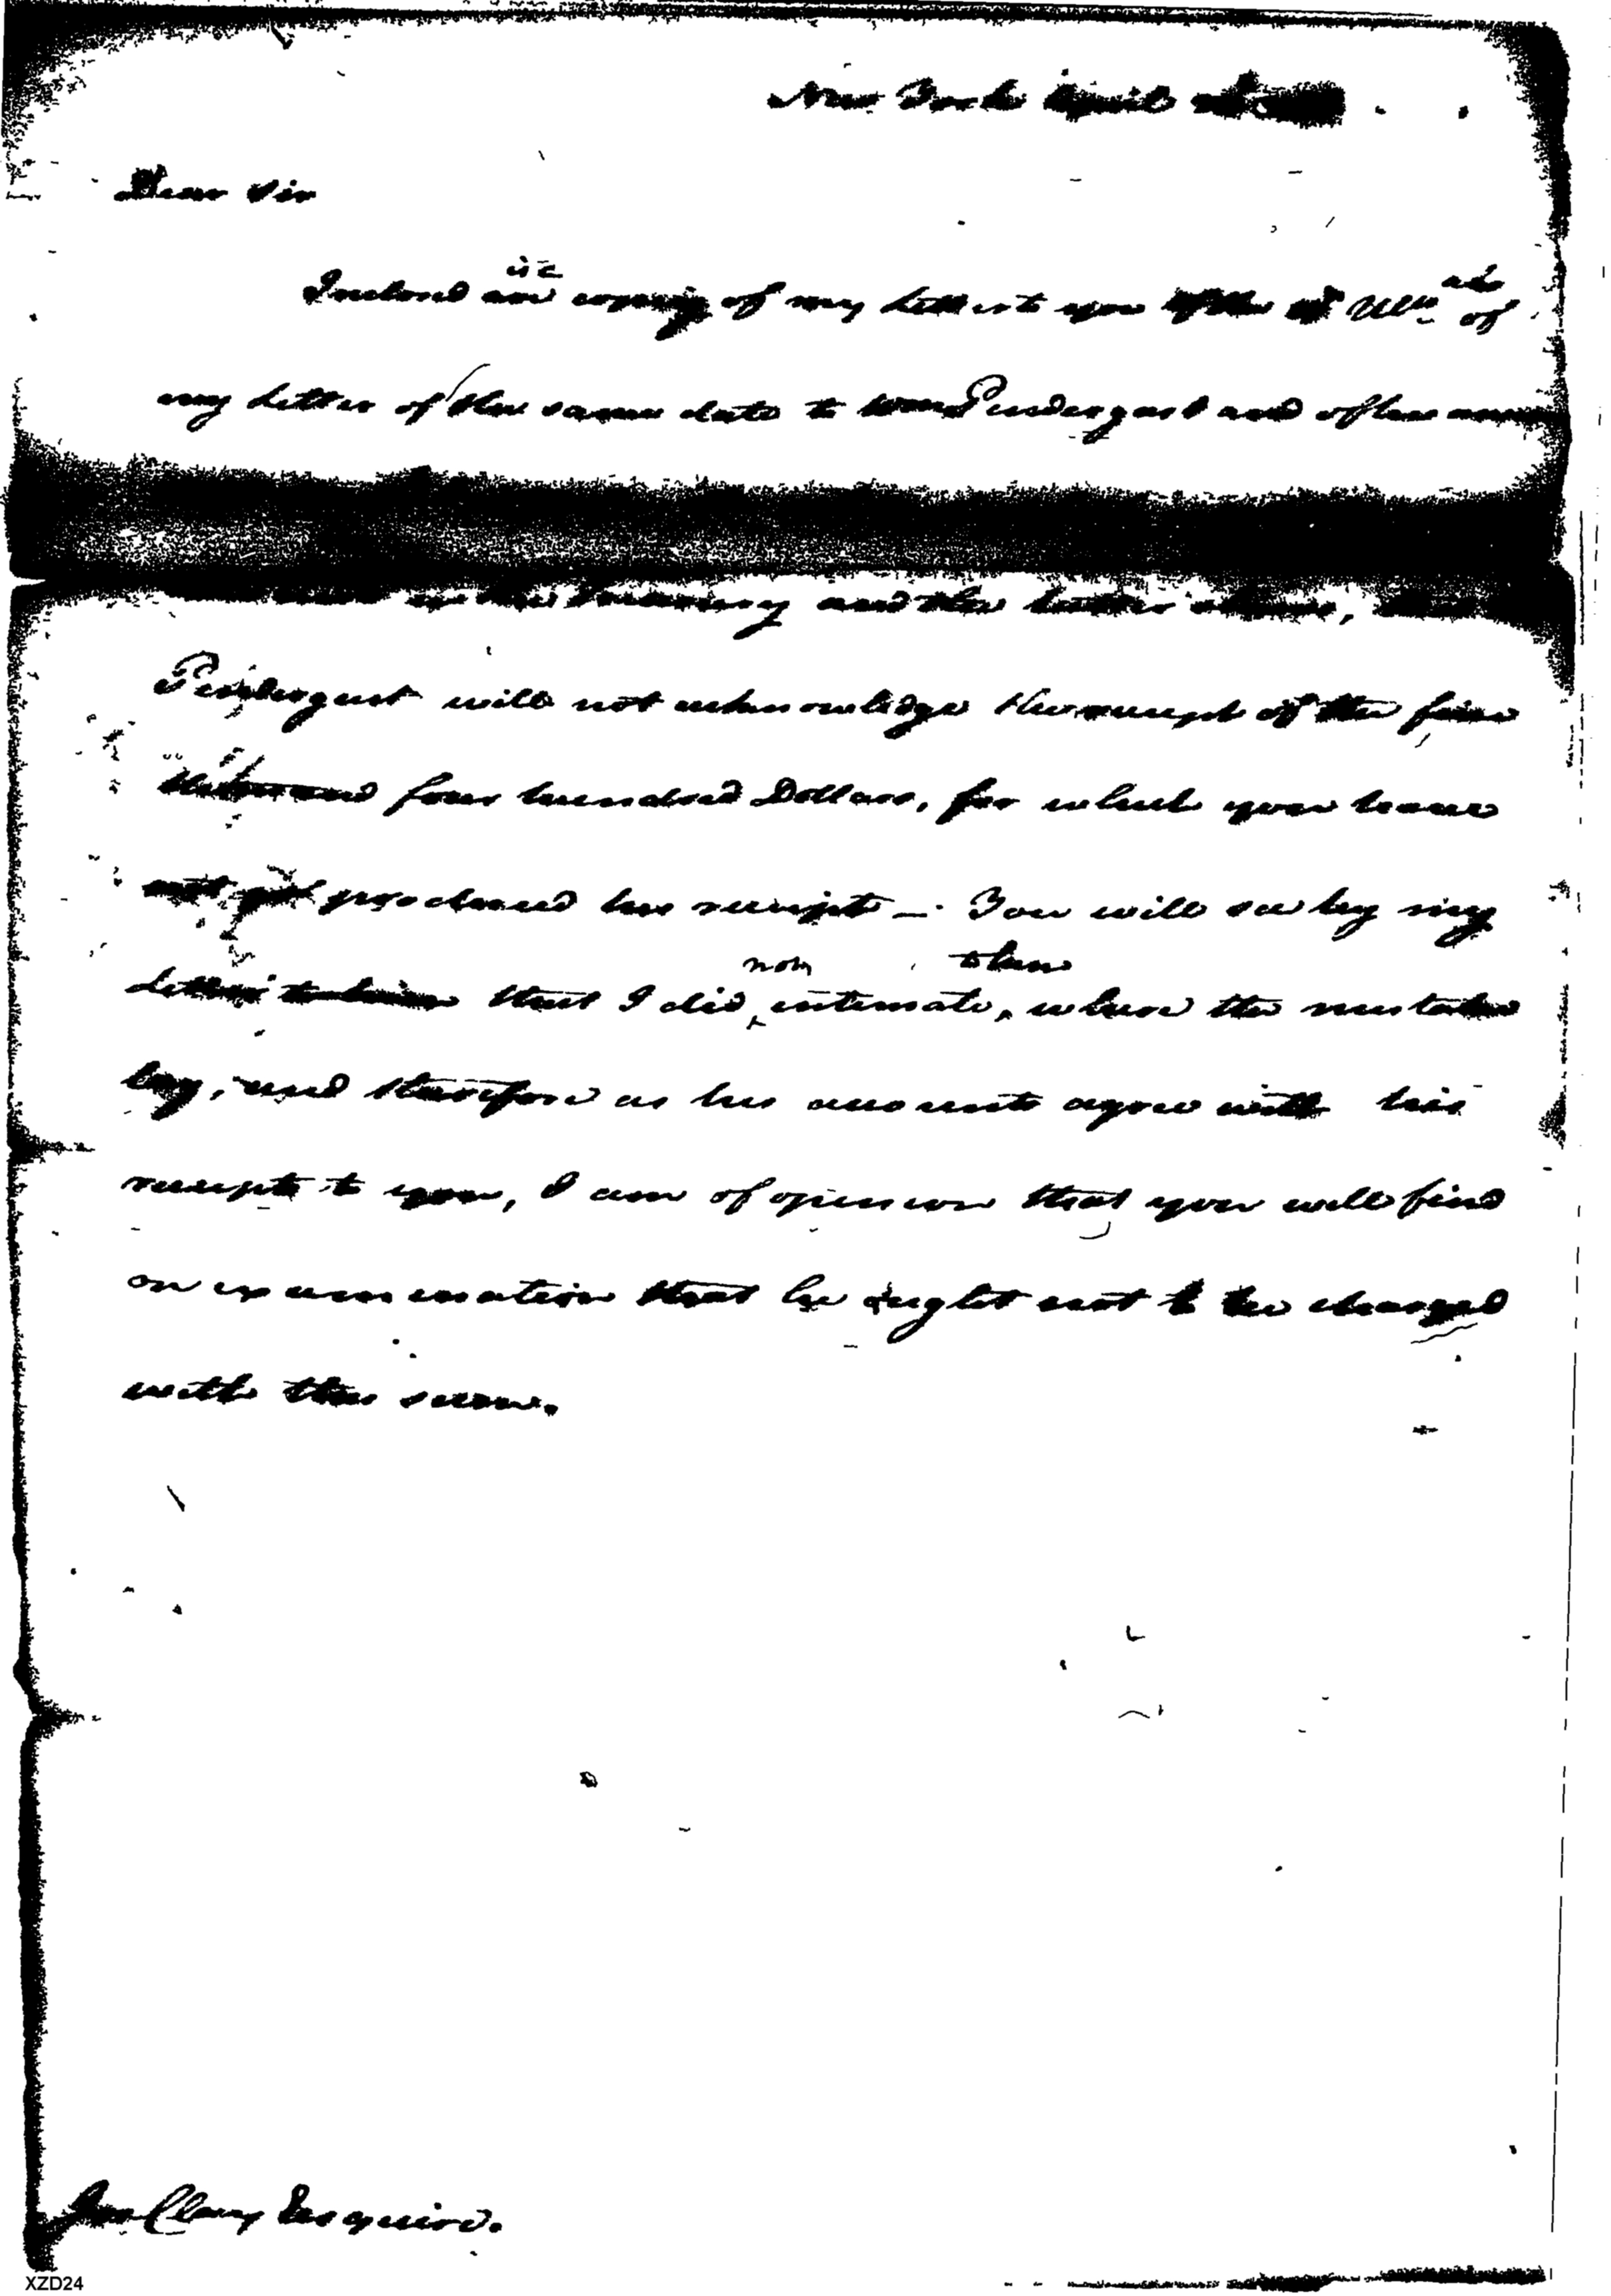 New York April
Dear Sir
is a
Inclosed are copy of my letter to you of the Ulto also of
my letter of the same date to Pendergast and of his
Treasury and the latter
Pendergast will not acknowledge the receipt of the five
thousand four hundred Dollars, for which you have
not yet produced his receipt — You will see by my
not then
letter to him that I did intimate, where the mistake
lay, and therefore as his accounts agree with his
receipts to you, I am of opinion that you will find
on examination that he ought not to be charged
with this sum.
Esquire.
XZD24